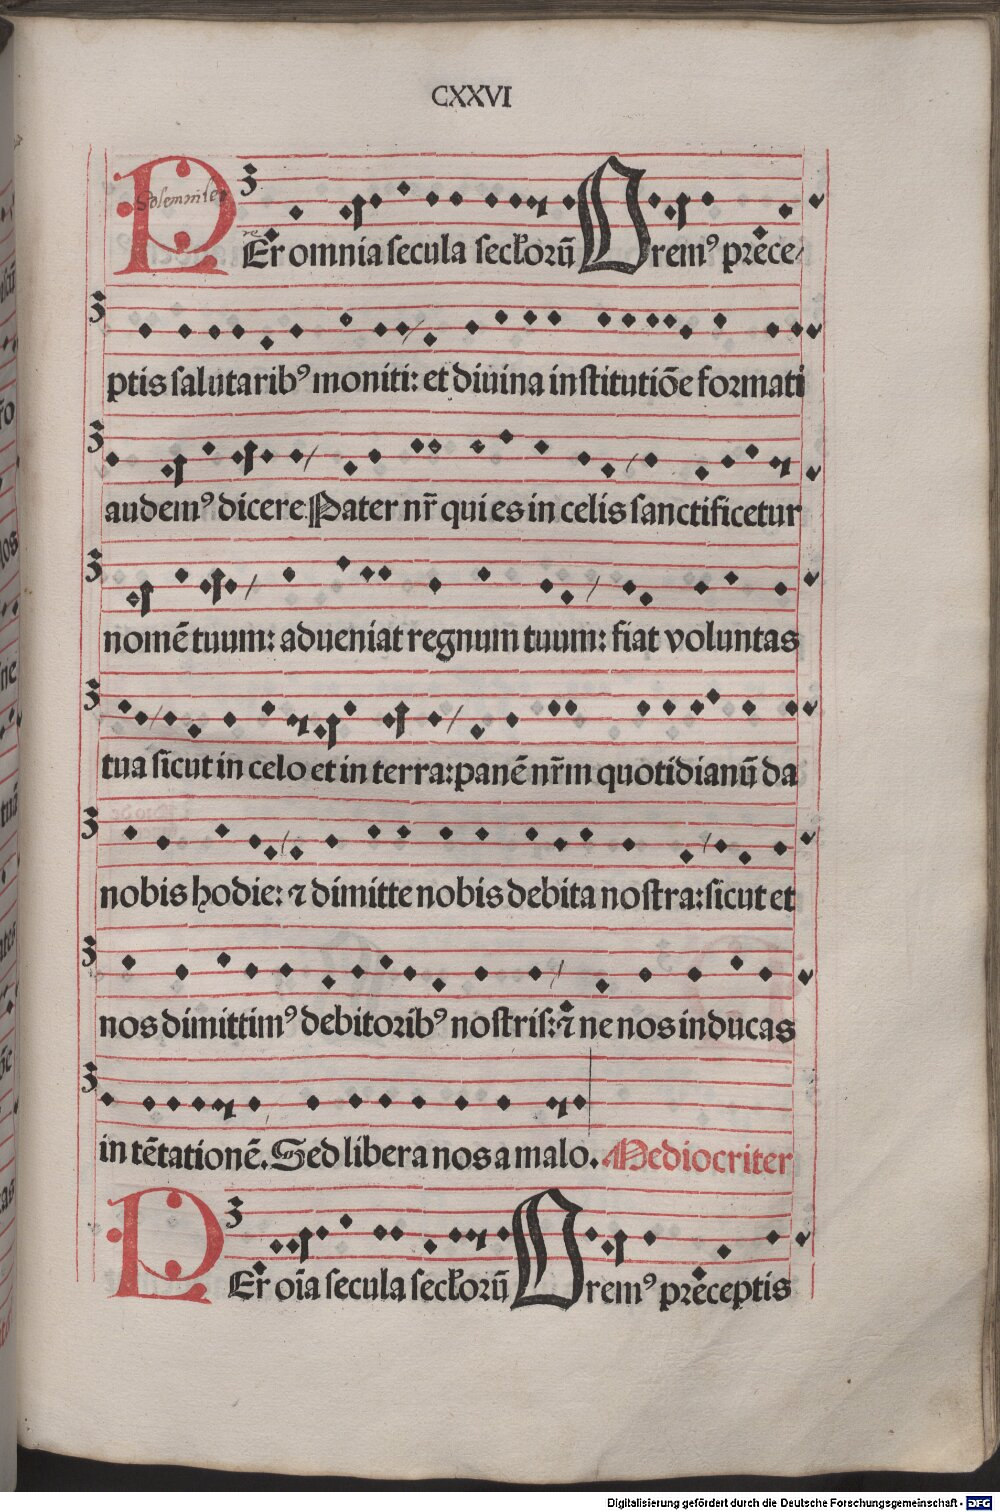 CXXVI
Solemniter
PEr omnia secula secłorū Orem⁹ prece
ptis salutarib⁹ moniti: et diuina institutiōe formati
audem⁹ dicere Pater nr̄ qui es in celis sanctificetur
nomē tuum: adueniat regnum tuum: fiat voluntas
tua sicut in celo et in terra: panē nr̄m quotidianū da
nobis hodie: ⁊ dimitte nobis debita nostra: sicut et
nos dimittim⁹ debitorib⁹ nostris: ⁊ ne nos inducas
in tētationē. Sed libera nos a malo. Mediocriter
PEr oīa secula secłorū Orem⁹ preceptis
Digitalisierung gefördert durch die Deutsche Forschungsgemeinschaft - DFG